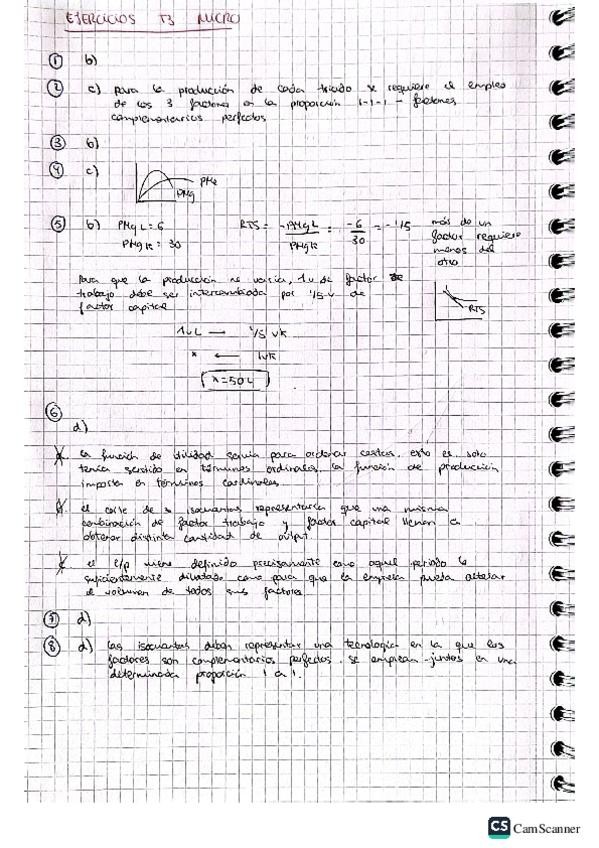 EJERCICIOS T3 MICRO
① b)
② c) para la producción de cada triudo se requiere el empleo
de los 3 factores en la proporción 1-1-1 - factores
complementarios perfectos
③ b)
④ c) PMe
PMg
⑤ b) PMgL = 6 RTS = -PMgL / PMgK = -6/30 = -1/5 más de un
PMgK = 30 factor requiere
menos del
otro
Para que la producción no varíe, 1u de factor
trabajo debe ser intercambiada por 1/5 u de
factor capital
RTS
1uL → 1/5 uK
x ← 1uK
x = 5uL
⑥
d)
a. la función de utilidad servía para ordenar cestas, esto es, solo
tenía sentido en términos ordinales. la función de producción
importa en términos cardinales
b. el corte de isocuantas representaría que una misma
combinación de factor trabajo y factor capital llevan a
obtener distinta cantidad de output
c. el l/p viene definido precisamente como aquel periodo lo
suficientemente dilatado como para que la empresa pueda alterar
el volumen de todos sus factores
⑦ d)
⑧ d) las isocuantas deben representar una tecnología en la que los
factores son complementarios perfectos. se emplean juntos en una
determinada proporción 1 a 1.
CS CamScanner